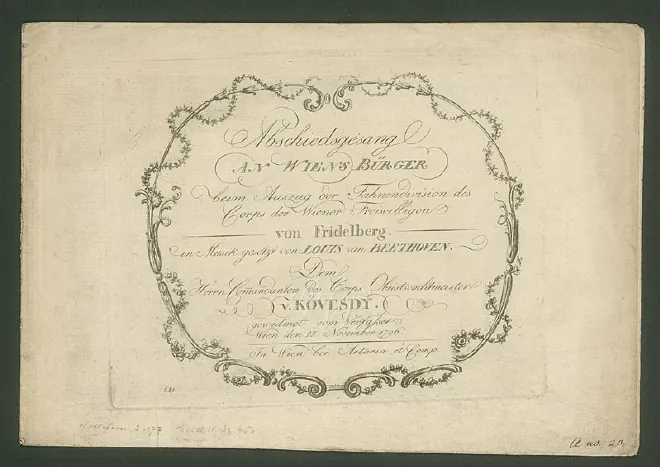 Abschiedsgesang
AN WIENS BÜRGER
beim Auszug der Fahnendivision des
Corps der Wiener Freiwilligen
von Fridelberg.
in Musick gesetzt von LOUIS van BEETHOVEN.
Dem
Herrn Comandanten des Corps Obristwachtmeister
v. KÖVESDY.
gewidmet vom Verfasser
Wien den 15 November 1796
In Wien bei Artaria et Comp.